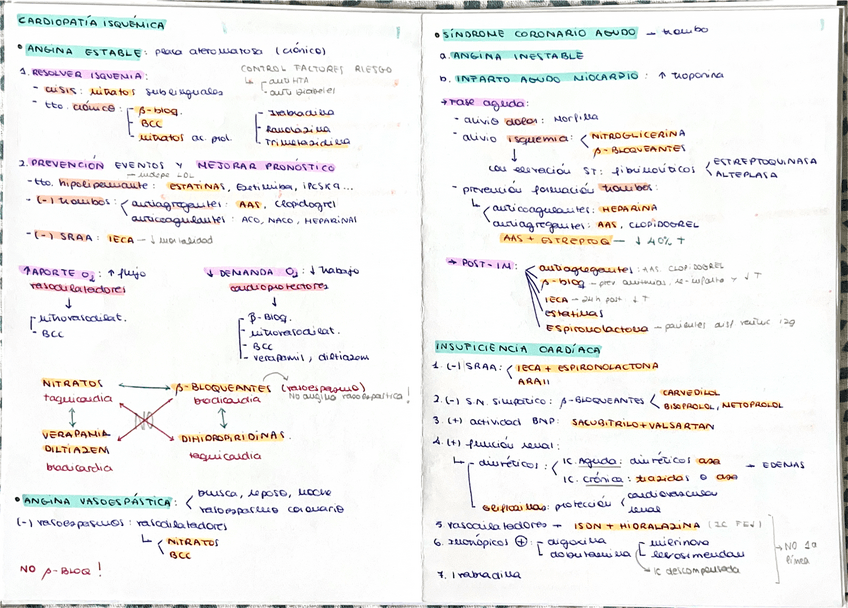 CARDIOPATÍA ISQUÉMICA
• ANGINA ESTABLE: placa ateromatosa (crónico)
1. RESOLVER ISQUEMIA:
CONTROL FACTORES RIESGO
- antiHTA
- antidiabetes
- crisis: nitratos sublinguales
- tto. crónico: - β-bloq.
- BCC
- nitratos ac. prol.
- Ivabradina
- Ranolazina
- Trimetazidina
2. PREVENCIÓN EVENTOS Y MEJORAR PRONÓSTICO
- indep LDL
- tto. hipolipemiante: ESTATINAS, Ezetimiba, iPCSK9...
- (-) trombos: antiagregantes: AAS, clopidogrel
anticoagulantes: ACO, NACO, HEPARINAS
- (-) SRAA: IECA - ↓ mortalidad
↑ APORTE O2: ↑ flujo
vasodilatadores
↓
- nitrovasodilat.
- BCC
↓ DEMANDA O2: ↓ trabajo
cardioprotectores
↓
- β-Bloq.
- nitrovasodilat.
- BCC
- verapamil, diltiazem
NITRATOS
taquicardia
β-BLOQUEANTES (vasoespasmo)
bradicardia
No angina vasoespástica!
NO
VERAPAMIL
DILTIAZEM
bradicardia
DIHIDROPIRIDINAS
taquicardia
• ANGINA VASOESPÁSTICA: brusca, reposo, noche
vasoespasmo coronario
(-) vasoespasmos: vasodilatadores
NITRATOS
BCC
NO β-BLOQ!
• SÍNDROME CORONARIO AGUDO - trombo
a. ANGINA INESTABLE
b. INFARTO AGUDO MIOCARDIO: ↑ troponina
→ Fase aguda:
- alivio dolor: Morfina
- alivio isquemia: NITROGLICERINA
β-BLOQUEANTES
↓
con elevación ST: fibrinolíticos ESTREPTOQUINASA
ALTEPLASA
- prevención formación trombos:
anticoagulantes: HEPARINA
antiagregantes: AAS, CLOPIDOGREL
AAS + ESTREPTOQ - ↓ 40% †
→ POST-IM: antiagregantes: AAS, CLOPIDOGREL
β-bloq - prev arritmias, re-infarto y ↓ †
IECA - 24h post. ↓ †
estatinas
Espironolactona - pacientes disf ventric izq
INSUFICIENCIA CARDÍACA
1. (-) SRAA: IECA + ESPIRONOLACTONA
ARAII
2. (-) S.N. Simpático: β-BLOQUEANTES CARVEDILOL
BISOPROLOL, METOPROLOL
3. (+) actividad BNP: SACUBITRILO + VALSARTAN
4. (+) función renal:
- diuréticos: IC. Aguda: diuréticos asa
IC. crónica: tiazidas o asa
→ EDEMAS
- Gliflozinas: protección cardiovascular
renal
5. vasodilatadores → ISDN + HIDRALAZINA (IC FE↓)
6. Inotrópicos ⊕ - digoxina
- dobutamina
- milrinona
- levosimendan
→ IC descompensada
NO 1a
línea
7. Ivabradina